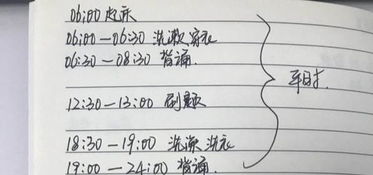 06:00 起床
06:00—06:30 洗漱穿衣
06:30—08:30 背诵.
12:30—13:00 刷题
18:30—19:00 洗漱 洗衣
19:00—24:00 背诵.
平时